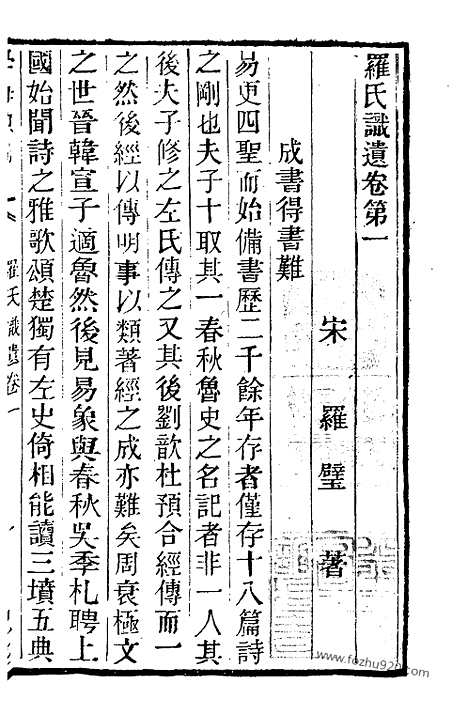 羅氏識遺卷第一
宋 羅璧 著
成書得書難
易更四聖而始備書歷二千餘年存者僅存十八篇詩
之剛也夫子十取其一春秋魯史之名記者非一人其
後夫子修之左氏傳之又其後劉歆杜預合經傳而一
之然後經以傳明事以類著經之成亦難矣周衰極文
之世晉韓宣子適魯然後見易象與春秋吳季札聘上
國始聞詩之雅歌頌楚獨有左史倚相能讀三墳五典
羅氏識遺卷一
www.fozhu920.com